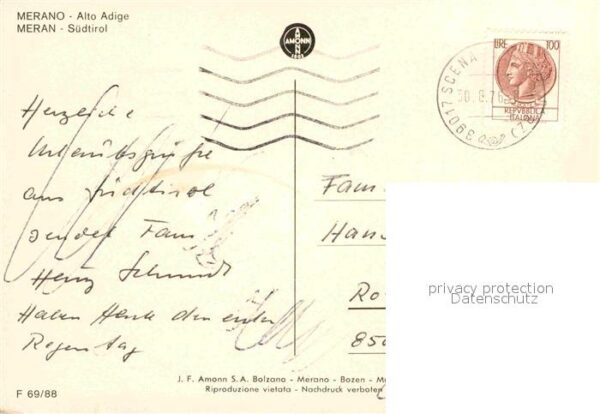 MERANO - Alto Adige
MERAN - Südtirol
AMONN
LIRE 100
REPVBBLICA
ITALIANA
39017 SCENA
30.8.76
Herzliche
Urlaubsgrüße
aus Südtirol
sendet Fam
Heinz Schmidt
Haben Heute den ersten
Regentag
Fam
Han
Ro
850
privacy protection
Datenschutz
J. F. Amonn S.A. Bolzano - Merano - Bozen - M
Riproduzione vietata - Nachdruck verboten
F 69/88